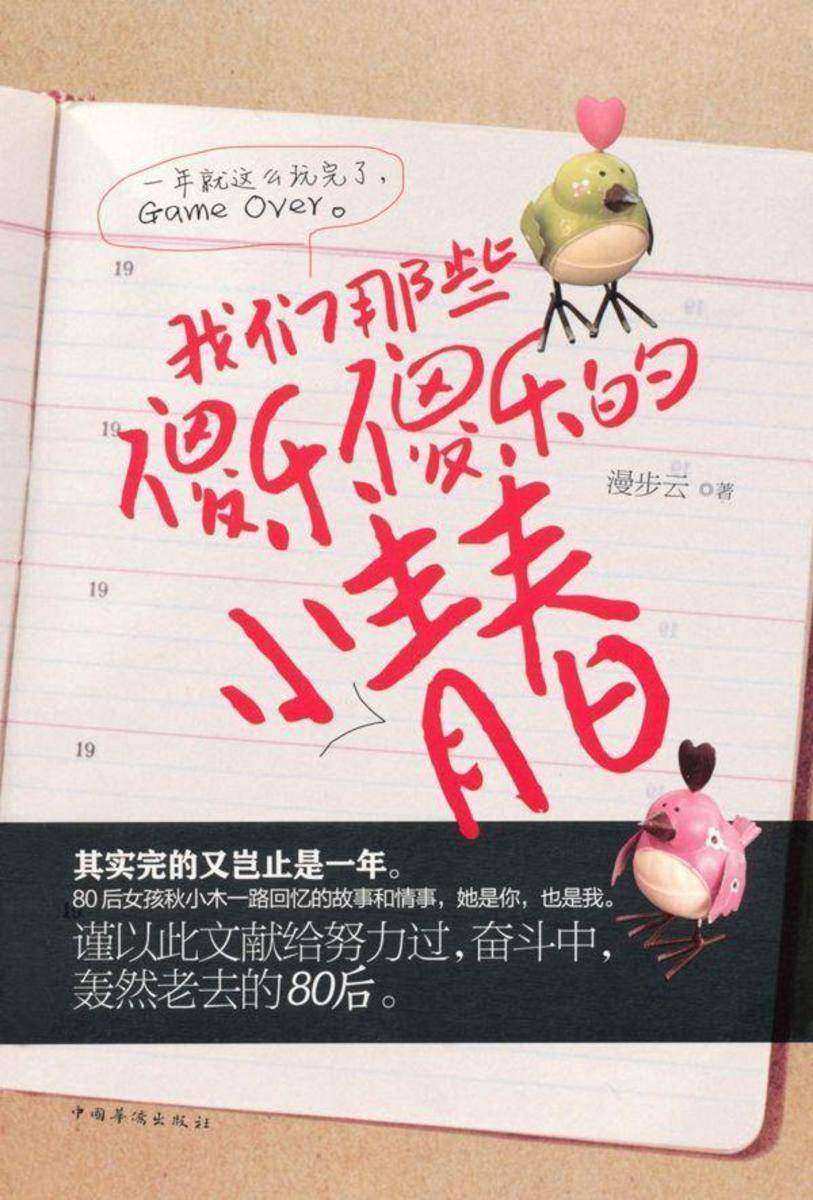 一年就这么玩完了，
Game Over。
19
我们那些
19
傻乐傻乐的
漫步云 ◎著
19
小青春
19
其实完的又岂止是一年。
80后女孩秋小木一路回忆的故事和情事，她是你，也是我。
谨以此文献给努力过，奋斗中，
轰然老去的80后。
中国华侨出版社